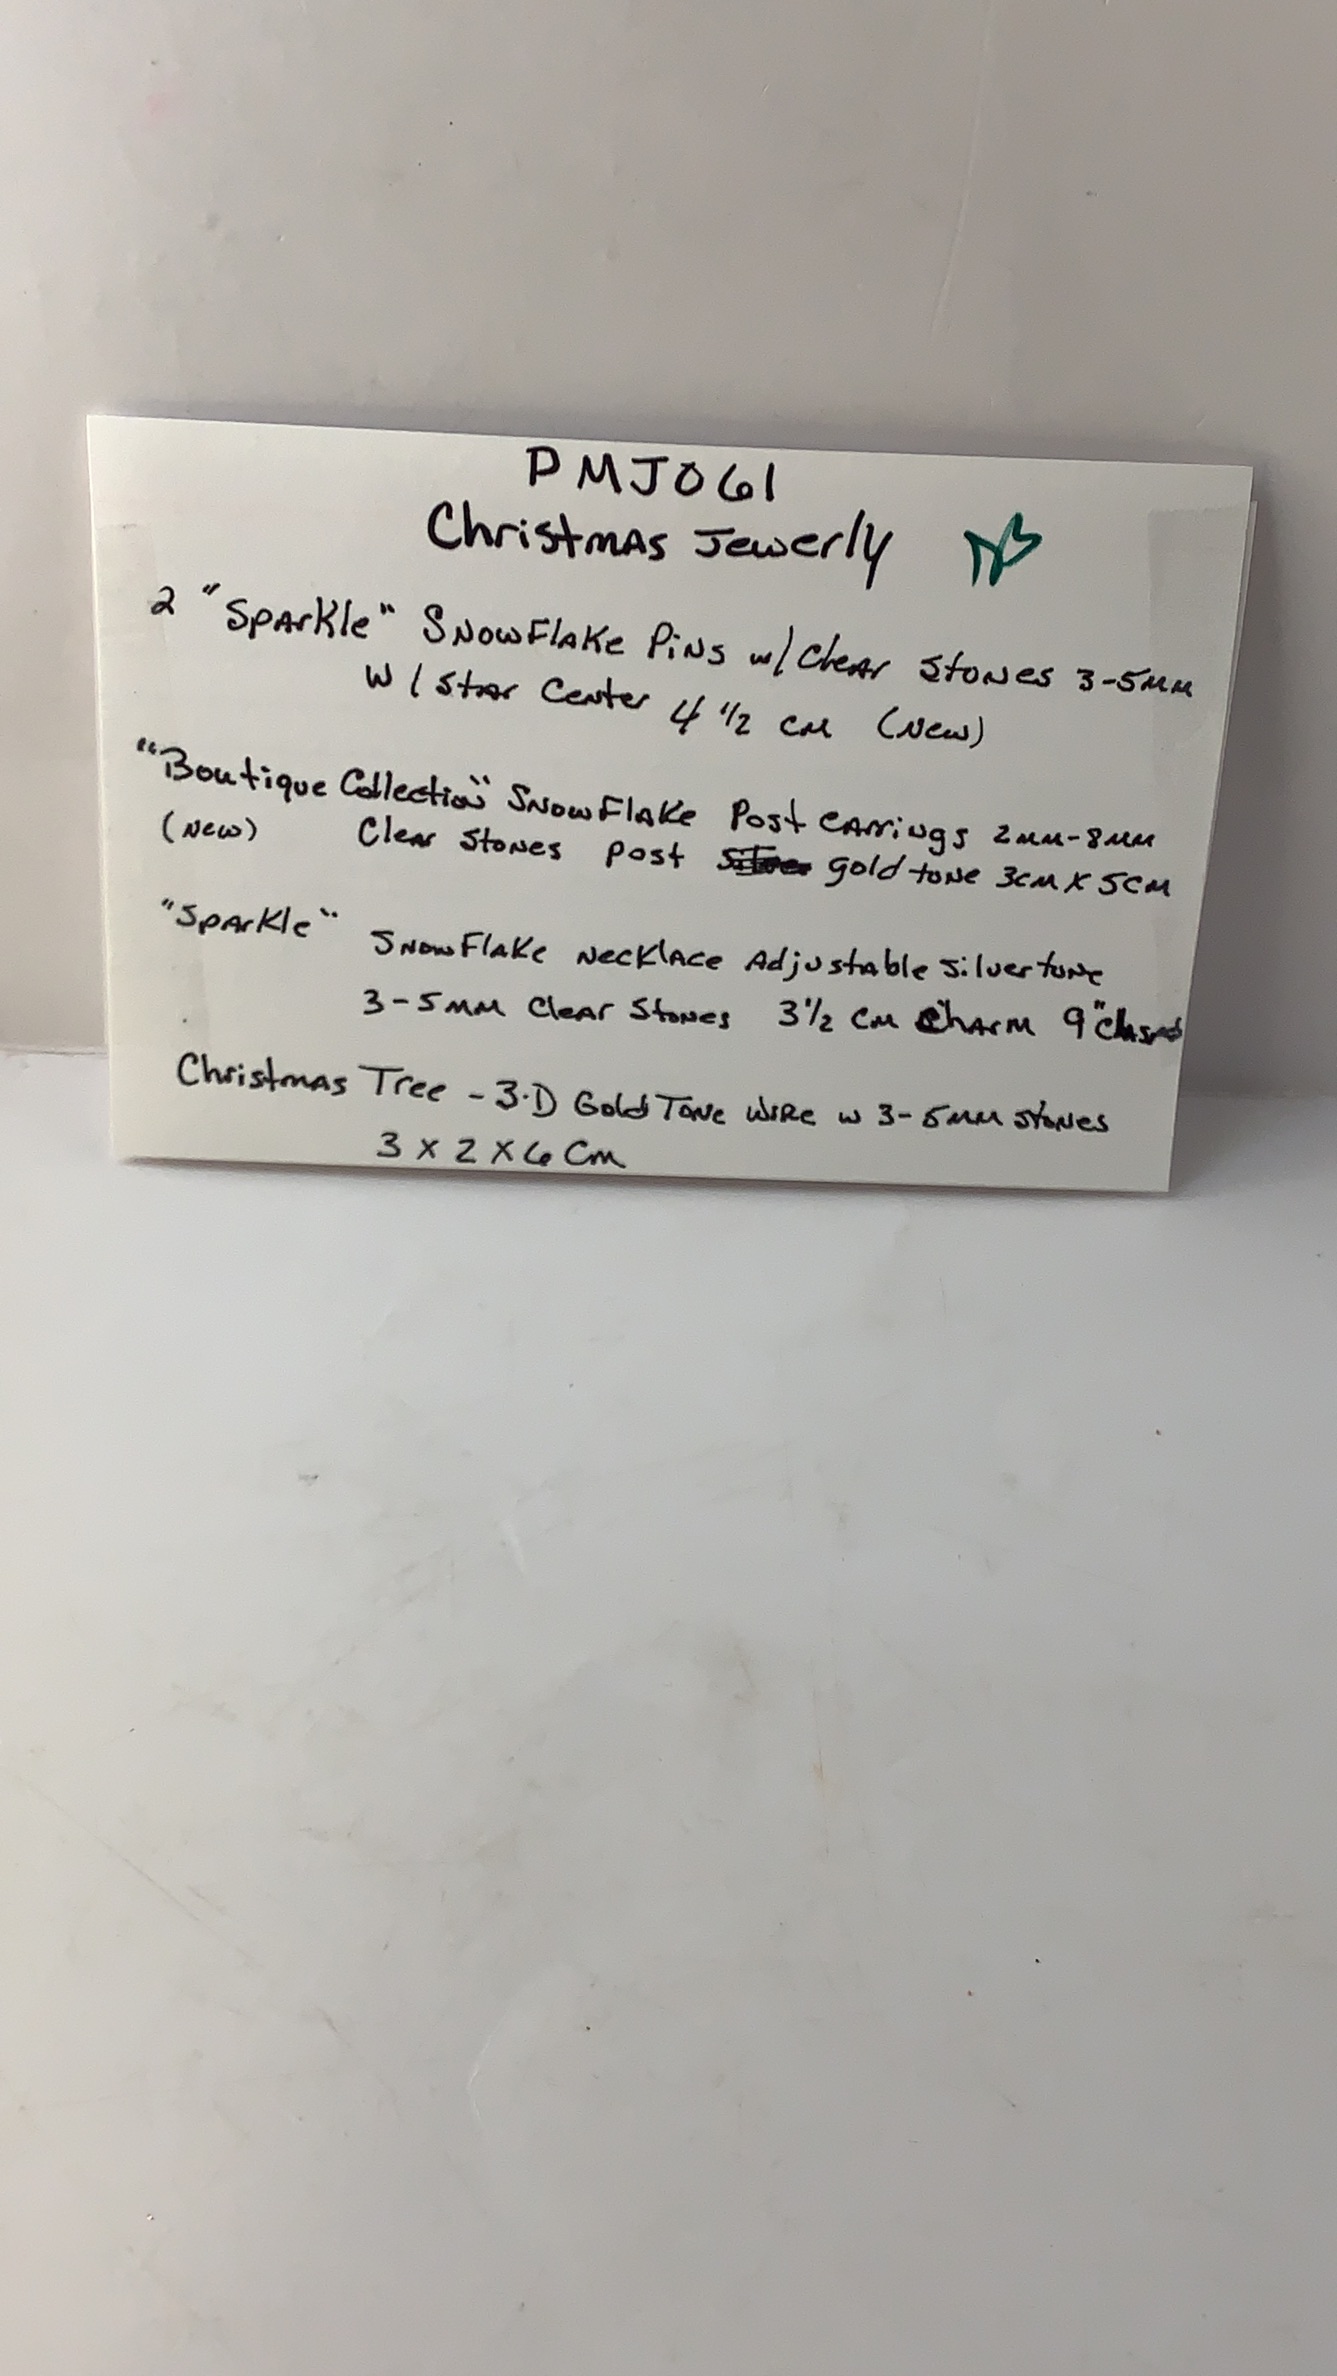 PMJ061
Christmas Jewerly NB
2 "Sparkle" Snowflake Pins w/ Clear Stones 3-5mm
w/ Star Center 4 1/2 cm (New)
"Boutique Collection" Snowflake Post earrings 2mm-8mm
(New) Clear Stones post gold tone 3cm x 5cm
"Sparkle" Snowflake Necklace Adjustable silvertone
3-5mm Clear Stones 3 1/2 cm Charm 9" Clasped
Christmas Tree - 3-D Gold Tone Wire w 3-5mm stones
3 x 2 x 6 cm